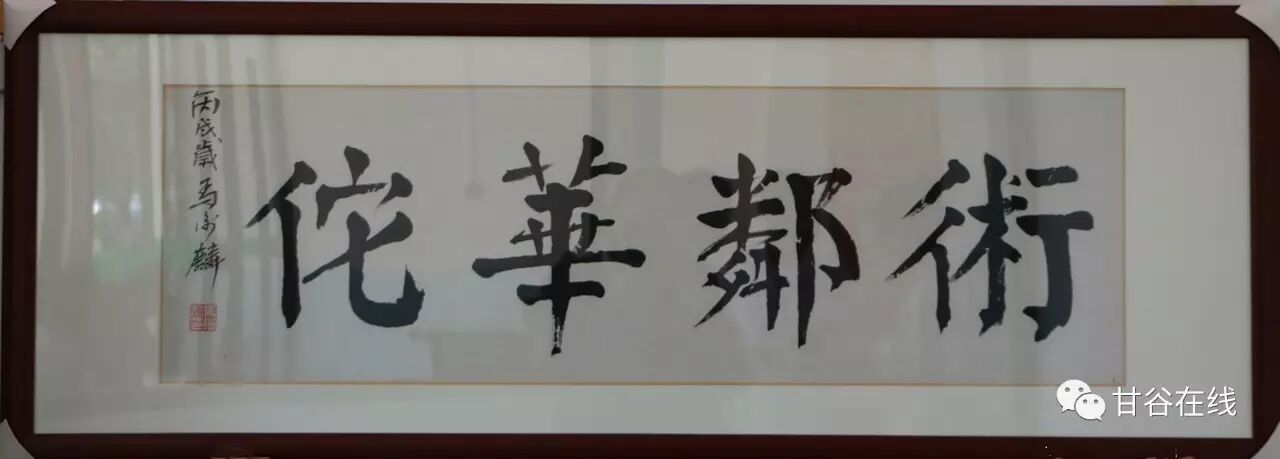 術鄰華佗
丙戌歲馬
麟
甘谷在线